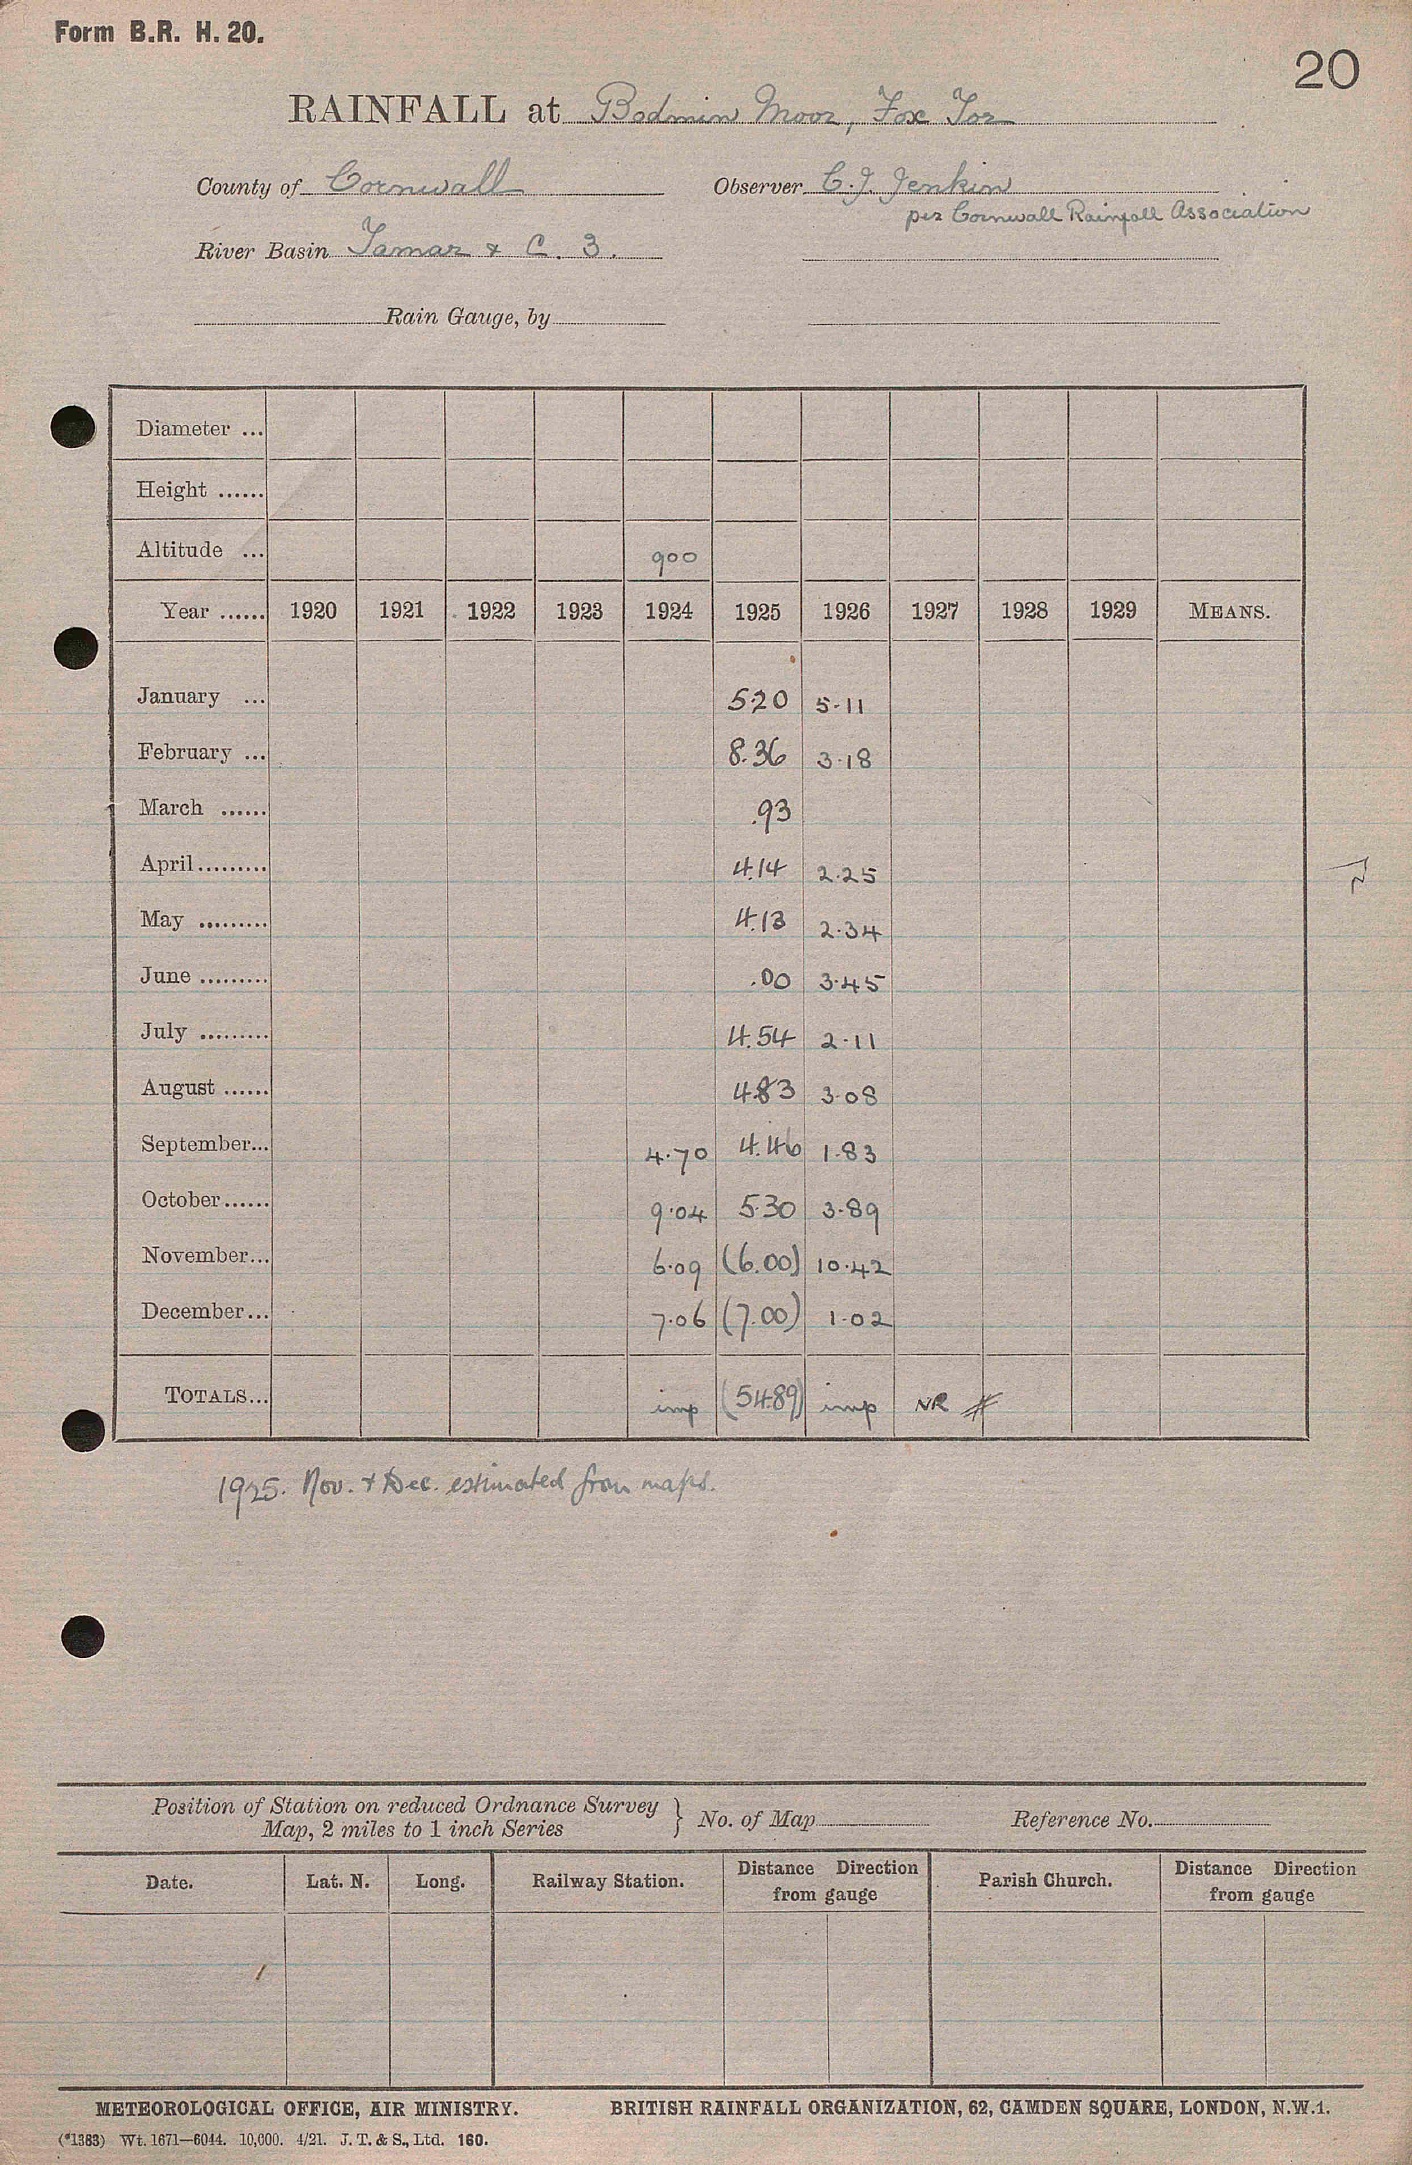 Form B.R. H. 20.
20
RAINFALL at Bodmin Moor, Fox Tor
County of Cornwall Observer C. J. Jenkin
per Cornwall Rainfall Association
River Basin Tamar & C. 3.
Rain Gauge, by
Diameter ...
Height ......
Altitude ... 900
Year ...... 1920 1921 1922 1923 1924 1925 1926 1927 1928 1929 MEANS.
January ... 5.20 5.11
February ... 8.36 3.18
March ...... .93
April ......... 4.14 2.25
May ......... 4.13 2.34
June ......... .00 3.45
July ......... 4.54 2.11
August ...... 4.83 3.08
September... 4.70 4.46 1.83
October...... 9.04 5.30 3.89
November... 6.09 (6.00) 10.42
December... 7.06 (7.00) 1.02
TOTALS... imp (54.89) imp NR #
1925. Nov. & Dec. estimated from maps.
Position of Station on reduced Ordnance Survey
Map, 2 miles to 1 inch Series } No. of Map Reference No.
Date. Lat. N. Long. Railway Station. Distance Direction
from gauge Parish Church. Distance Direction
from gauge
METEOROLOGICAL OFFICE, AIR MINISTRY. BRITISH RAINFALL ORGANIZATION, 62, CAMDEN SQUARE, LONDON, N.W.1.
(*1383) Wt. 1671—6044. 10,000. 4/21. J. T. & S., Ltd. 160.